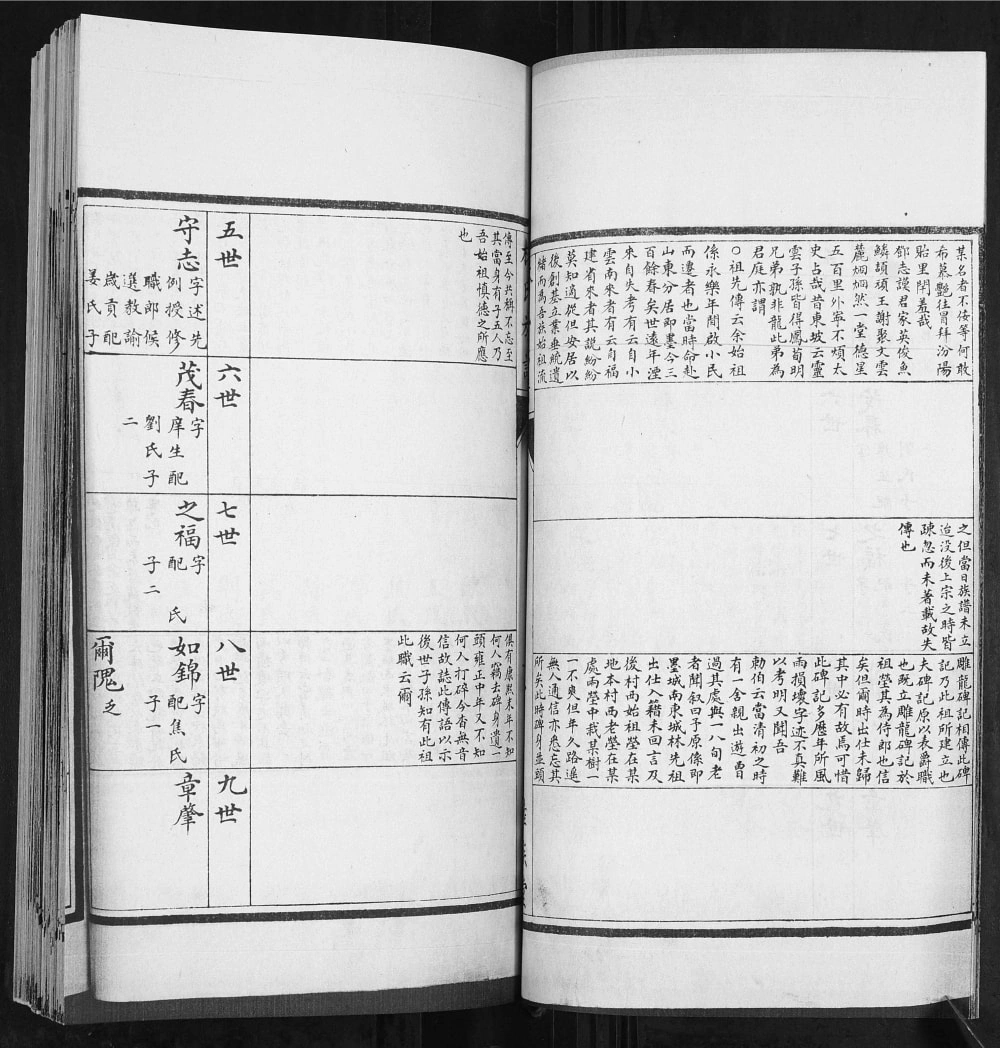 某名者不佞等何敢
布慕艷往冒拜汾陽
貽里閈羞哉
鄧志謨君家英俊魚
鱗頡頏王謝聚文雲
麓烟烟然一堂德星
五百里外寧不煩太
史占哉昔東坡云靈
雲子孫皆得鳳荀明
兄弟孰非龍此弟為
君庭亦謂
○祖先傳云余始祖
係永樂年間啟小民
而遷者也當時命赴
山東分居即墨今三
百餘春矣世遠年湮
來自失考有云自小
雲南來者有云自福
建省來者其說紛紛
莫知適從但安居以
後創基立業垂統遺
緒而為吾族始祖流
之但當日族譜未立
迨没後上宗之時皆
疎忽而未著載故失
傳也
雕龍碑記相傳此碑
記乃此祖所建立也
夫碑記原以表爵職
也既立雕龍碑記於
祖塋其為侍郎也信
矣但爾時出仕未歸
其中必有故焉可惜
此碑記多歷年所風
雨損壞字迹不真難
以考明又聞吾
勅伯云當清初之時
有一舍親出遊曾
過其處與一八旬老
者閒叙曰予原係即
墨城南東城林先祖
出仕入籍未回言及
後村西始祖塋在某
地本村西老塋在某
處兩塋中栽某樹一
一不爽但年久路遙
無人通信亦悉忘其
所矣此時碑身並頭
傳至今共稱不忘至
其當身有子五人乃
吾始祖慎德之所應
也
俱有康熙末年不知
何人竊去碑身遺一
頭雍正中年又不知
何人打碎今杳無音
信故誌此傳語以示
後世子孫知有此祖
此職云爾
五世
守志
字述先
例授修
職郎候
選教諭
歲貢配
姜氏子
六世
茂春
字
庠生配
劉氏子
二
七世
之福
字
配 氏
子二
八世
如錦
字
配焦氏
子一
爾隗乏
九世
章肇